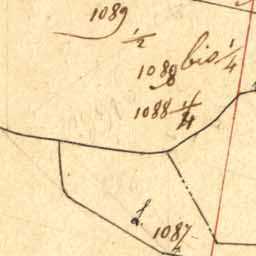 1089
1/2
1088 bis 1/4
1088 1/4
1087